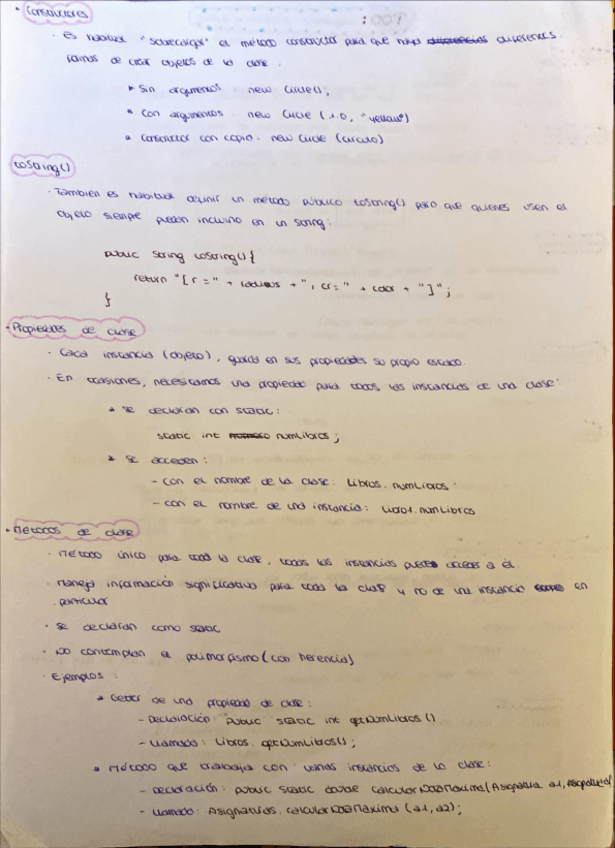 · Constructores
· Es habitual "sobrecargar" el método constructor para que haya diferentes
formas de crear objetos de la clase.
* Sin argumentos: new Circle();
* Con argumentos: new Circle (1.0, "yellow")
* Constructor con copia: new Circle (circulo)
toString()
· También es habitual definir un método público toString() para que quienes usen el
objeto siempre puedan incluirlo en un String:
public String toString() {
return "[ r = " + radius + ", cr= " + color + " ]" ;
}
· Propiedades de clase
· Cada instancia (objeto), guarda en sus propiedades su propio estado.
· En ocasiones, necesitamos una propiedad para todas las instancias de una clase:
* Se declaran con static:
static int numLibros ;
* Se acceden :
- Con el nombre de la clase: Libros.numLibros
- Con el nombre de una instancia: Libro1.numLibros
· Métodos de clase
· Método único para toda la clase, todas las instancias pueden acceder a él.
· Maneja información significativa para toda la clase y no de una instancia en
particular
· Se declaran como static
· No contemplan el polimorfismo (con herencia)
· Ejemplos :
* Getter de una propiedad de clase :
- Declaración: Public static int getNumLibros ()
- Llamada : Libros. getNumLibros() ;
* Método que trabaja con varias instancias de la clase:
- Declaración: public static double calcularNotaMaxima (Asignatura a1, Asignatura
- Llamada: Asignaturas. calcularNotaMaxima (a1, a2);